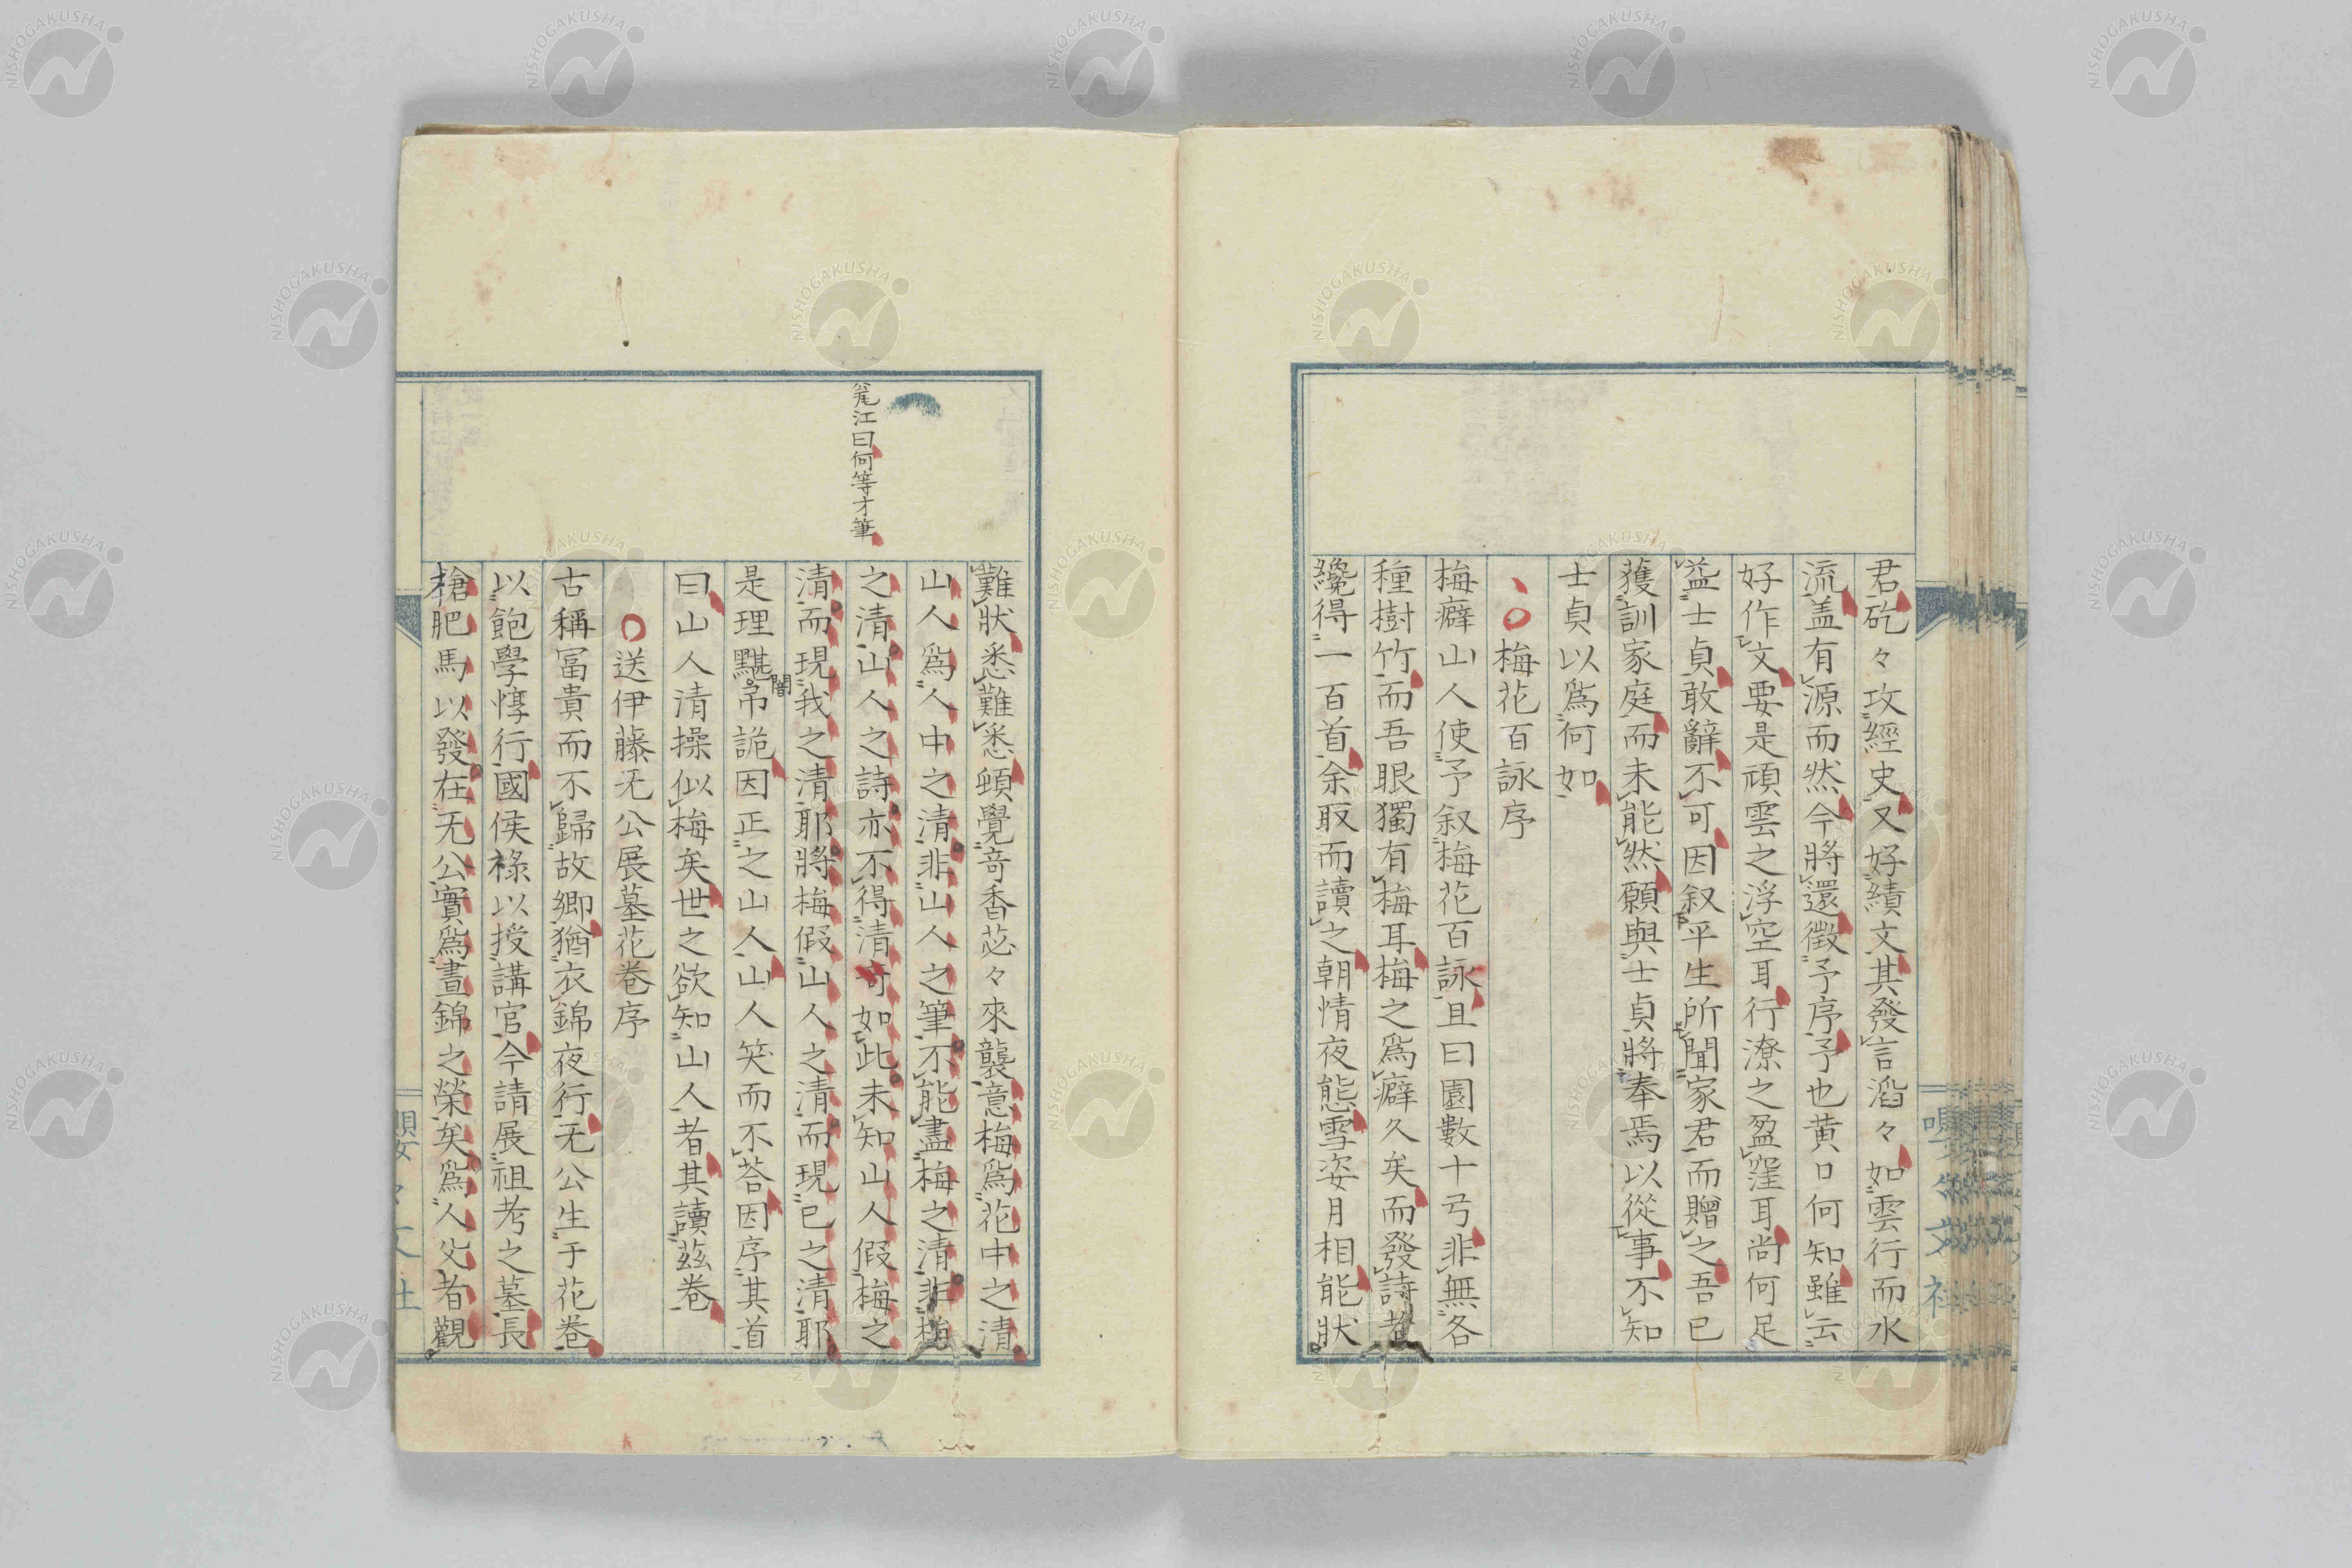 君矻々攻經史又好績文其發言滔々如雲行而水
流盖有源而然今將還徵予序予也黄口何知雖云
好作文要是頑雲之浮空耳行潦之盈窪耳尚何足
益士貞敢辭不可因叙平生所聞家君而贈之吾已
獲訓家庭而未能然願與士貞將奉焉以從事不知
士貞以爲何如
梅花百詠序
梅癖山人使予叙梅花百詠且曰園數十弓非無各
種樹竹而吾眼獨有梅耳梅之爲癖久矣而發詩者
纔得一百首余取而讀之朝情夜態雪姿月相能狀
難狀悉難悉頓覺竒香苾々來襲意梅爲花中之清
山人爲人中之清非山人之筆不能盡梅之清非梅
之清山人之詩亦不得清奇如此未知山人假梅之
清而現我之清耶將梅假山人之清而現已之清耶
是理黮闇弔詭因正之山人山人笑而不荅因序其首
曰山人清操似梅矣世之欲知山人者其讀茲卷
送伊藤无公展墓花巻序
古稱冨貴而不歸故郷猶衣錦夜行无公生于花巻
以飽學惇行國侯祿以授講官今請展祖考之墓長
槍肥馬以發在无公實爲晝錦之榮矣爲人父者觀
江曰何等才筆
嚶々文社
NISHOGAKUSHA